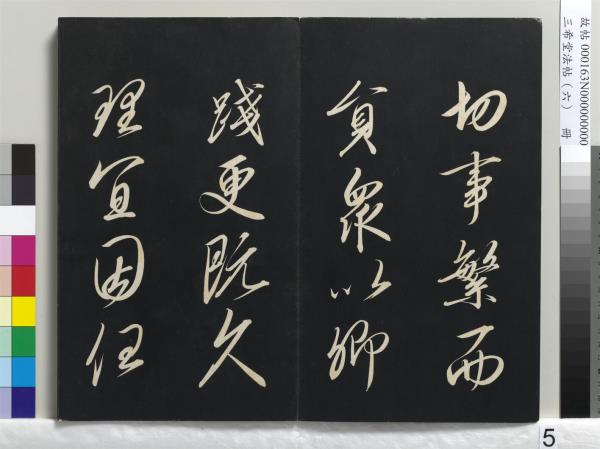 切事繁而
員衆以卿
踐更既久
理宜因任
故帖 000163N000000000
三希堂法帖（六） 冊
5